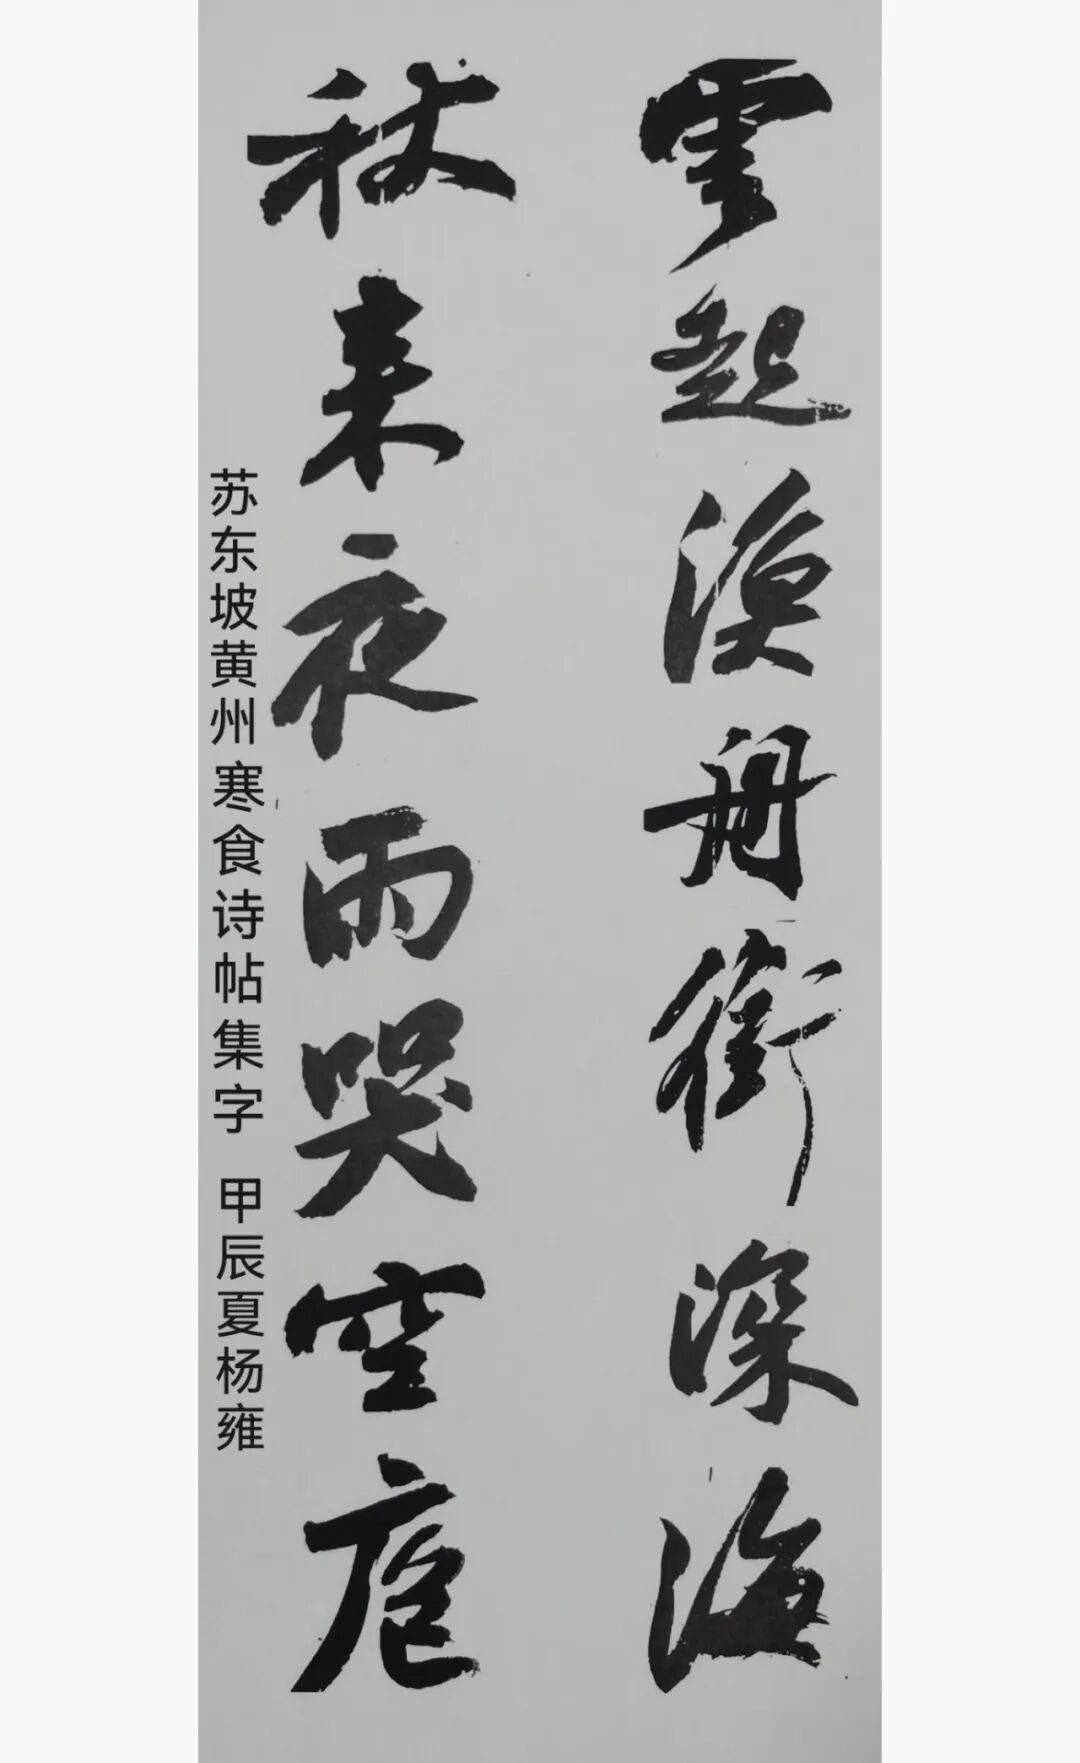 雲起漁舟銜深海
秋来夜雨哭空庖
苏东坡黄州寒食诗帖集字 甲辰夏杨雍